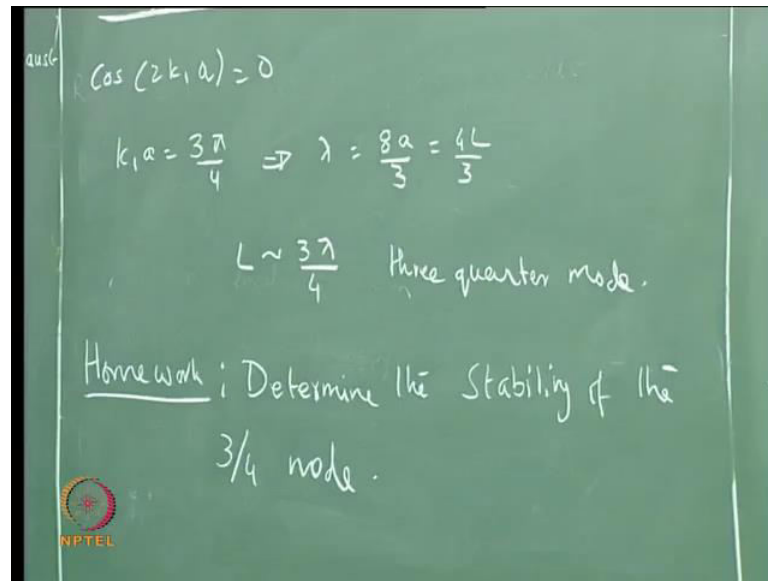 aust
Cos (2k, a) = 0
k, a = 3π/4 ⇒ λ = 8a/3 = 4L/3
L ~ 3λ/4 three quarter mode.
Homework : Determine the Stability of the
3/4 mode.
NPTEL